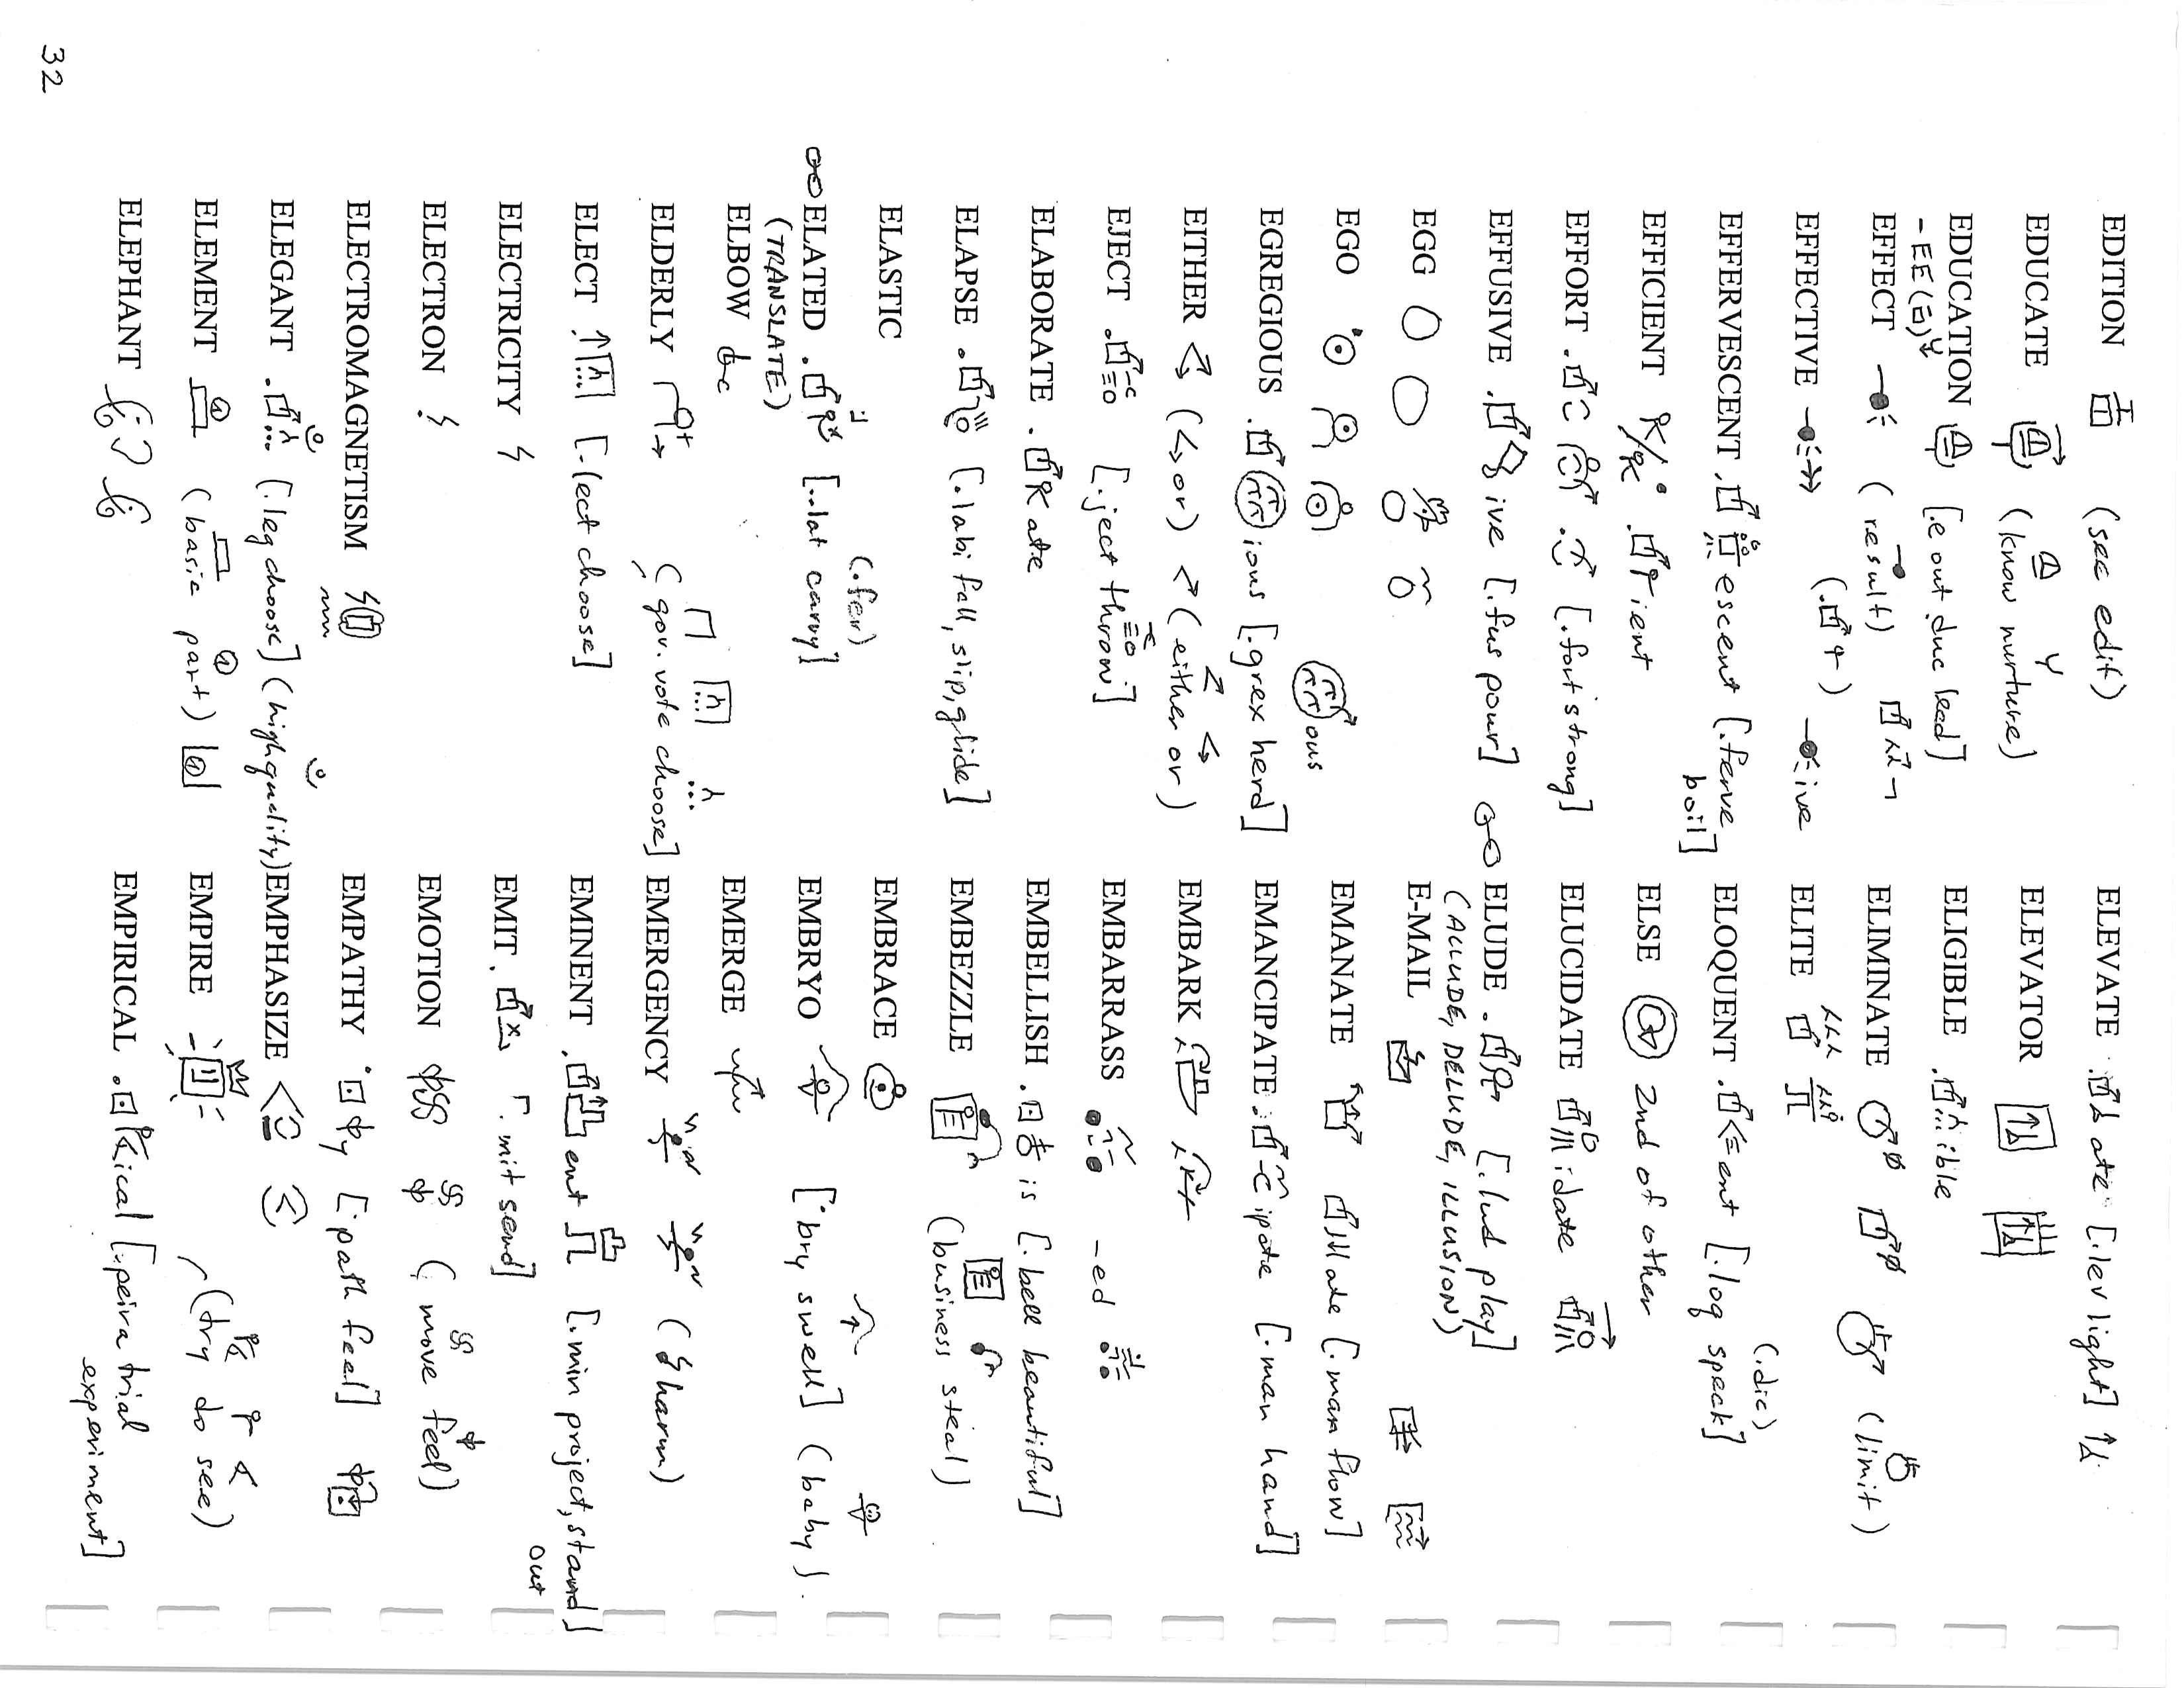 EDITION (see edit)
EDUCATE (know nurture)
EDUCATION [.e out .duc lead]
-EE
EFFECT (result)
EFFECTIVE ive
EFFERVESCENT escent [.ferve boil]
EFFICIENT ient
EFFORT [.forti strong]
EFFUSIVE ive [.fus pour]
EGG
EGO
ous
EGREGIOUS ious [.grex herd]
EITHER (or) (either or)
EJECT [.ject throw]
ELABORATE ate
ELAPSE [.labi fall, slip, glide]
ELASTIC
(.fer)
ELATED [..lat carry]
(TRANSLATE)
ELBOW
ELDERLY
(gov. vote choose]
ELECT [.lect choose]
ELECTRICITY
ELECTRON
ELECTROMAGNETISM
ELEGANT [.leg choose] (high quality)
ELEMENT (basic part)
ELEPHANT
ELEVATE ate [.lev light]
ELEVATOR
ELIGIBLE ible
ELIMINATE (limit)
ELITE
(.dic)
ELOQUENT ent [.log speak]
ELSE 2nd of other
ELUCIDATE idate
ELUDE [.lud play]
(ALLUDE, DELUDE, ILLUSION)
E-MAIL
EMANATE ate [.man flow]
EMANCIPATE ipate [.man hand]
EMBARK
EMBARRASS -ed
EMBELLISH is [.bell beautiful]
EMBEZZLE (business steal)
EMBRACE
EMBRYO [.bry swell] (baby)
EMERGE
EMERGENCY (harm)
EMINENT ent [.min project, stand out]
EMIT [.mit send]
EMOTION (move feel)
EMPATHY y [.path feel]
EMPHASIZE
EMPIRE (try do see)
EMPIRICAL ical [.peira trial experiment]
32